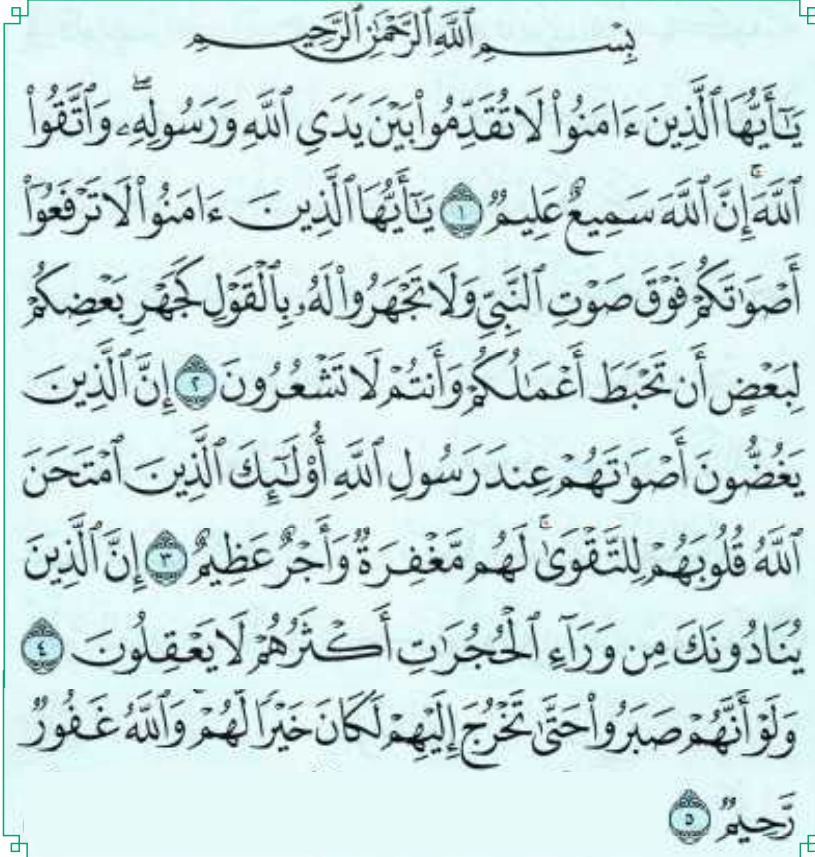 بِسْمِ ٱللَّهِ ٱلرَّحْمَٰنِ ٱلرَّحِيمِ
يَٰٓأَيُّهَا ٱلَّذِينَ ءَامَنُوا۟ لَا تُقَدِّمُوا۟ بَيْنَ يَدَىِ ٱللَّهِ وَرَسُولِهِۦ ۖ وَٱتَّقُوا۟
ٱللَّهَ ۚ إِنَّ ٱللَّهَ سَمِيعٌ عَلِيمٌ ١ يَٰٓأَيُّهَا ٱلَّذِينَ ءَامَنُوا۟ لَا تَرْفَعُوٓا۟
أَصْوَٰتَكُمْ فَوْقَ صَوْتِ ٱلنَّبِىِّ وَلَا تَجْهَرُوا۟ لَهُۥ بِٱلْقَوْلِ كَجَهْرِ بَعْضِكُمْ
لِبَعْضٍ أَن تَحْبَطَ أَعْمَٰلُكُمْ وَأَنتُمْ لَا تَشْعُرُونَ ٢ إِنَّ ٱلَّذِينَ
يَغُضُّونَ أَصْوَٰتَهُمْ عِندَ رَسُولِ ٱللَّهِ أُو۟لَٰٓئِكَ ٱلَّذِينَ ٱمْتَحَنَ
ٱللَّهُ قُلُوبَهُمْ لِلتَّقْوَىٰ ۚ لَهُم مَّغْفِرَةٌ وَأَجْرٌ عَظِيمٌ ٣ إِنَّ ٱلَّذِينَ
يُنَادُونَكَ مِن وَرَآءِ ٱلْحُجُرَٰتِ أَكْثَرُهُمْ لَا يَعْقِلُونَ ٤
وَلَوْ أَنَّهُمْ صَبَرُوا۟ حَتَّىٰ تَخْرُجَ إِلَيْهِمْ لَكَانَ خَيْرًا لَّهُمْ وَٱللَّهُ غَفُورٌ
رَّحِيمٌ ٥